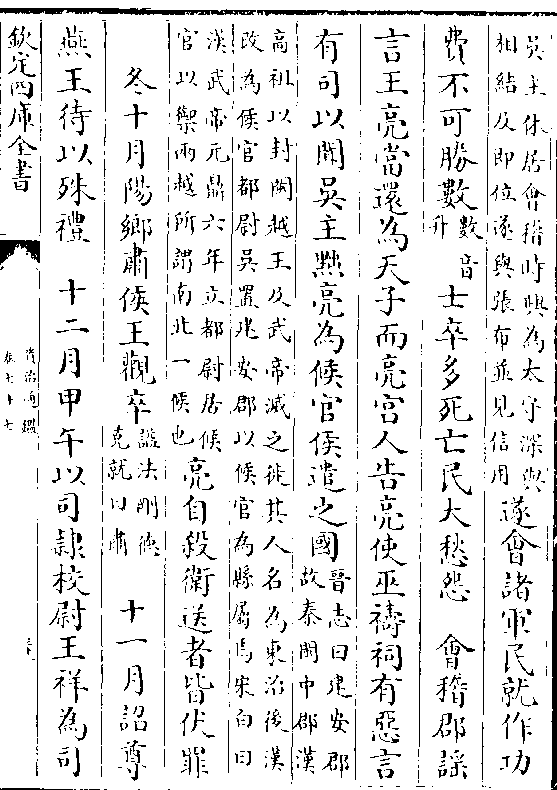 吳主休居會稽時興為太守深與
相結及即位遂與張布並見信用
遂會諸軍民就作功
費不可勝數
數音
升
士卒多死亡民大愁怨　會稽郡謡
言王亮當還為天子而亮宮人告亮使巫禱祠有惡言
有司以聞吳主黜亮為候官侯遣之國
晉志曰建安郡
故秦閩中郡漢
高祖以封閩越王及武帝滅之徙其人名為東冶後漢
改為候官都尉吳置建安郡以候官為縣屬焉宋白曰
漢武帝元鼎六年立都尉居候
官以禦兩越所謂南北一候也
亮自殺衛送者皆伏罪
冬十月陽鄉肅侯王觀卒
諡法剛德
克就曰肅
十一月詔尊
燕王待以殊禮　十二月甲午以司隷校尉王祥為司
欽定四庫全書
資治通鑑
卷七十七